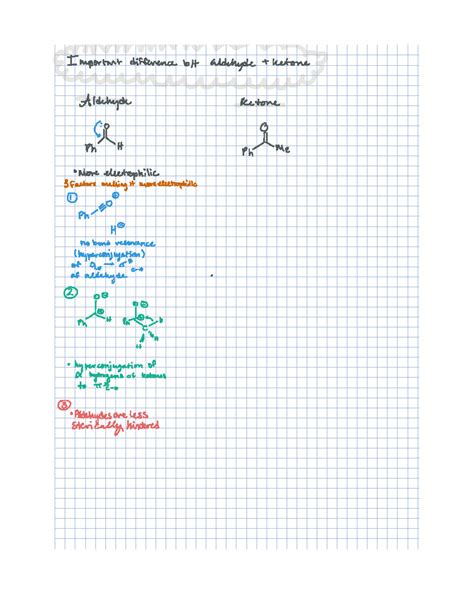 Important difference btt aldehyde + ketone
Aldehyde Ketone
O O
Ph H Ph Me
• More electrophilic
3 Factors making it more electrophilic
①
Ph O⊕
H⊖
no bond resonance
(hyperconjugation)
of → σ*
C-H
of aldehyde
②
O⊖ O⊖
Ph ⊕ H Ph ⊕ C H
H H
• hyperconjugation of
α hydrogens of ketones
to π*
③
• Aldehydes are less
sterically hindered